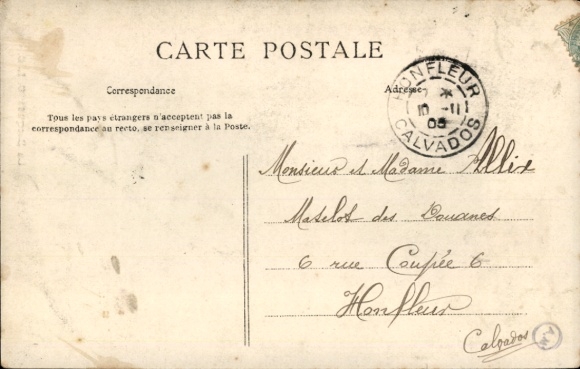 CARTE POSTALE
Correspondance
Tous les pays étrangers n'acceptent pas la
correspondance au recto, se renseigner à la Poste.
Adresse
HONFLEUR
10 -11
05
CALVADOS
Monsieur et Madame Allix
Matelot des Douanes
6 rue Coupée 6
Honfleur
Calvados